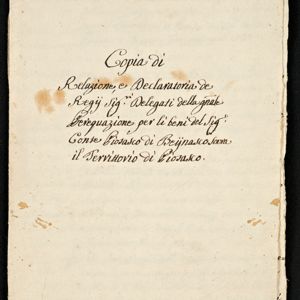 Copia di
Relazione, e Declaratoria de
Regij Sig.ri Delegati della gnãle
Perequazione per li beni del Sig.r
Conte Piosasco di Beijnasco sovra
il Territorio di Piosasco.